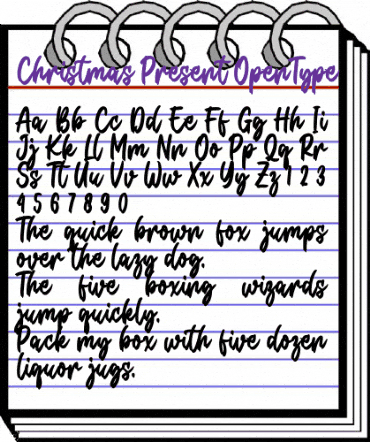 Christmas Present OpenType
Aa Bb Cc Dd Ee Ff Gg Hh Ii
Jj Kk Ll Mm Nn Oo Pp Qq Rr
Ss Tt Uu Vv Ww Xx Yy Zz 1 2 3
4 5 6 7 8 9 0
The quick brown fox jumps
over the lazy dog.
The five boxing wizards
jump quickly.
Pack my box with five dozen
liquor jugs.